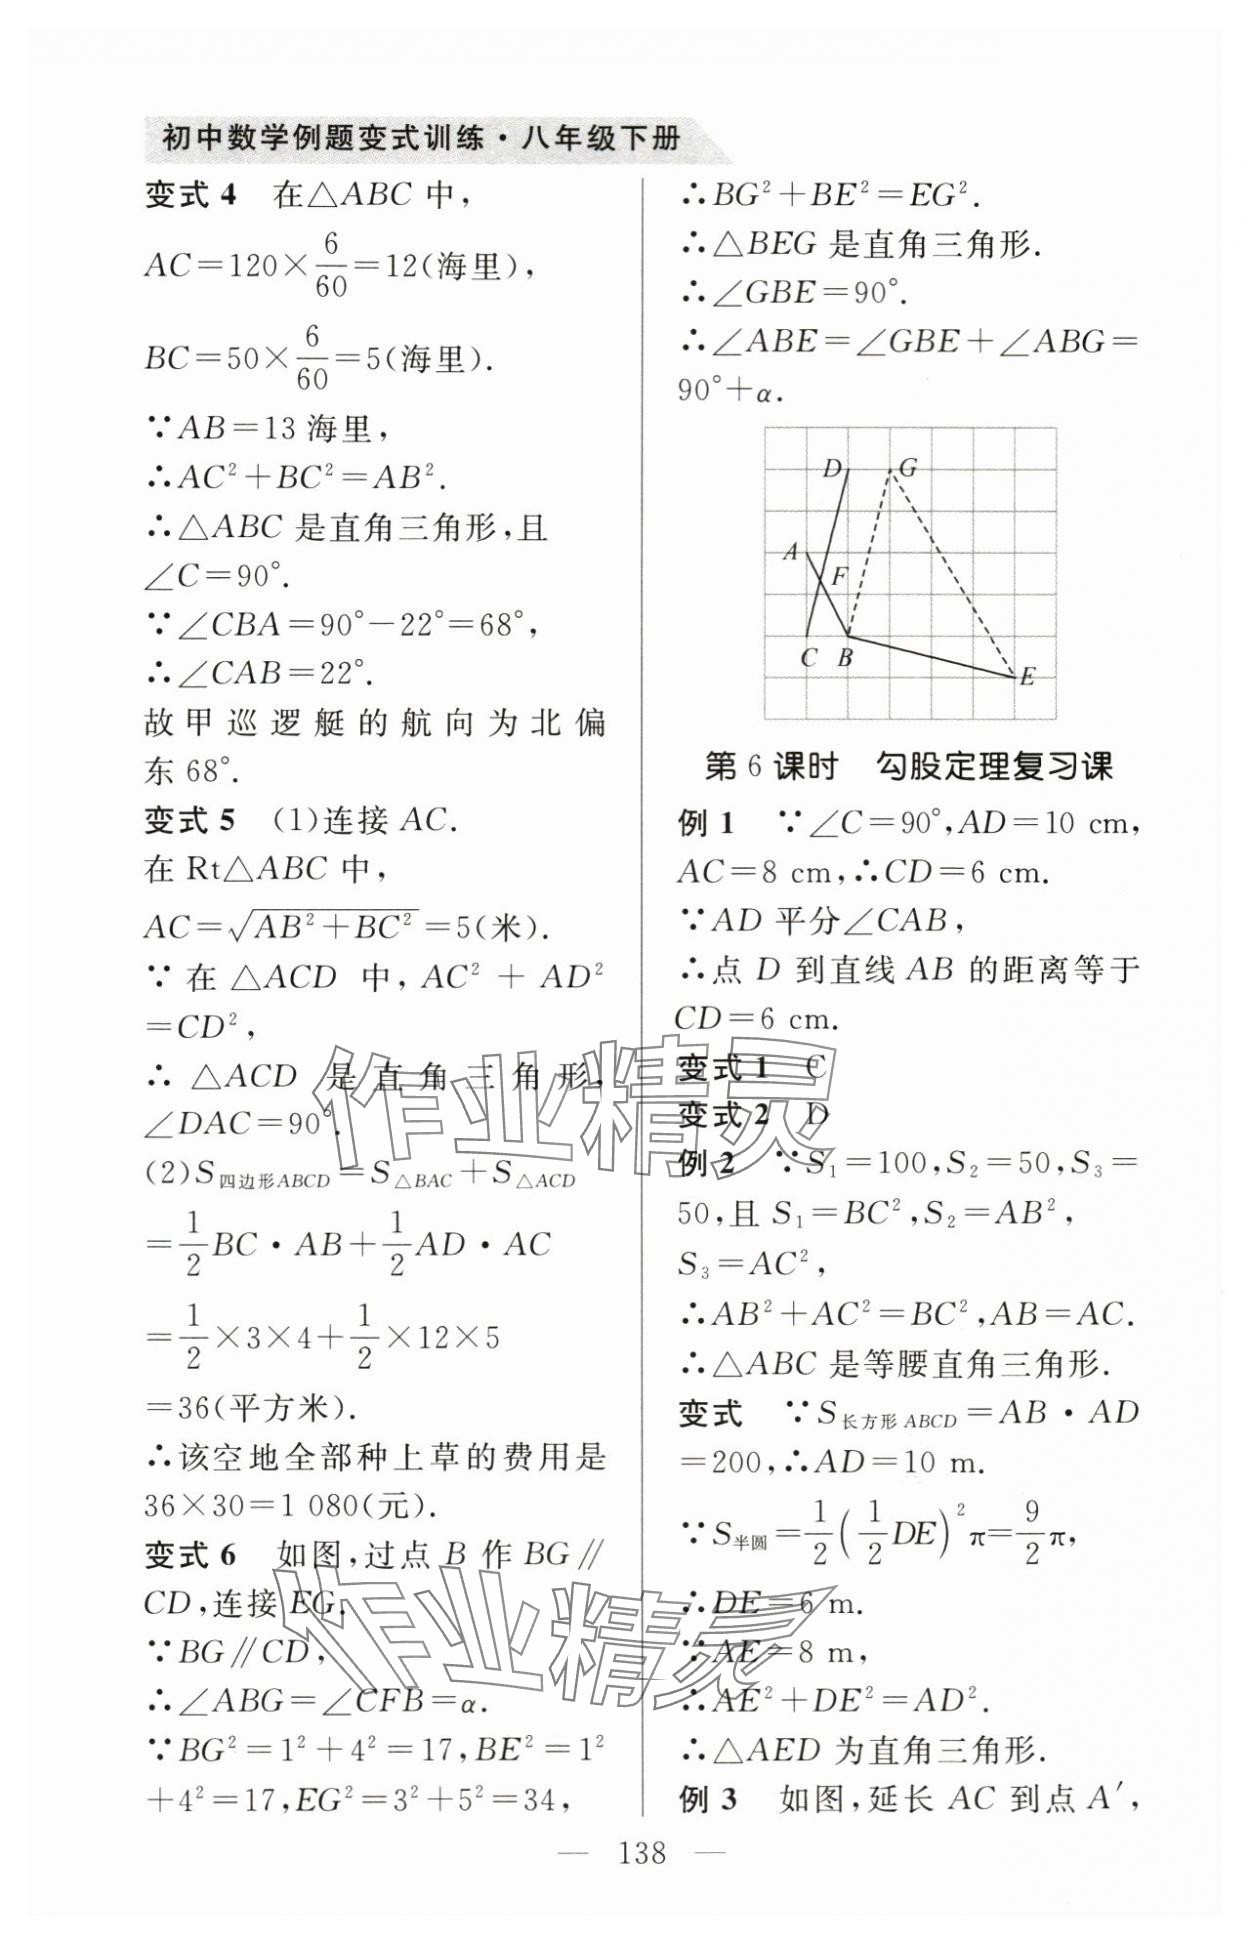 初中数学例题变式训练·八年级下册
变式 4 在△ABC 中，
AC=120×6/60=12(海里)，
BC=50×6/60=5(海里).
∵AB=13 海里，
∴AC²+BC²=AB².
∴△ABC 是直角三角形，且
∠C=90°.
∵∠CBA=90°-22°=68°，
∴∠CAB=22°.
故甲巡逻艇的航向为北偏
东 68°.
变式 5 (1)连接 AC.
在 Rt△ABC 中，
AC=√(AB²+BC²)=5(米).
∵ 在 △ACD 中，AC² + AD²
=CD²，
∴ △ACD 是直角三角形，
∠DAC=90°.
(2)S四边形ABCD=S△BAC+S△ACD
=1/2 BC·AB+1/2 AD·AC
=1/2×3×4+1/2×12×5
=36(平方米).
∴该空地全部种上草的费用是
36×30=1 080(元).
变式 6 如图，过点 B 作 BG∥
CD，连接 EG.
∵BG∥CD，
∴∠ABG=∠CFB=α.
∵BG²=1²+4²=17，BE²=1²
+4²=17，EG²=3²+5²=34，
∴BG²+BE²=EG².
∴△BEG 是直角三角形.
∴∠GBE=90°.
∴∠ABE=∠GBE+∠ABG=
90°+α.
D G
A
F
C B
E
第 6 课时 勾股定理复习课
例 1 ∵∠C=90°，AD=10 cm，
AC=8 cm，∴CD=6 cm.
∵AD 平分∠CAB，
∴点 D 到直线 AB 的距离等于
CD=6 cm.
变式 1 C
变式 2 D
例 2 ∵S₁=100，S₂=50，S₃=
50，且 S₁=BC²，S₂=AB²，
S₃=AC²，
∴AB²+AC²=BC²，AB=AC.
∴△ABC 是等腰直角三角形.
变式 ∵S长方形ABCD=AB·AD
=200，∴AD=10 m.
∵S半圆=1/2(1/2 DE)²π=9/2 π，
∴DE=6 m.
∵AE=8 m，
∴AE²+DE²=AD².
∴△AED 为直角三角形.
例 3 如图，延长 AC 到点 A′，
— 138 —
作业精灵
作业精灵